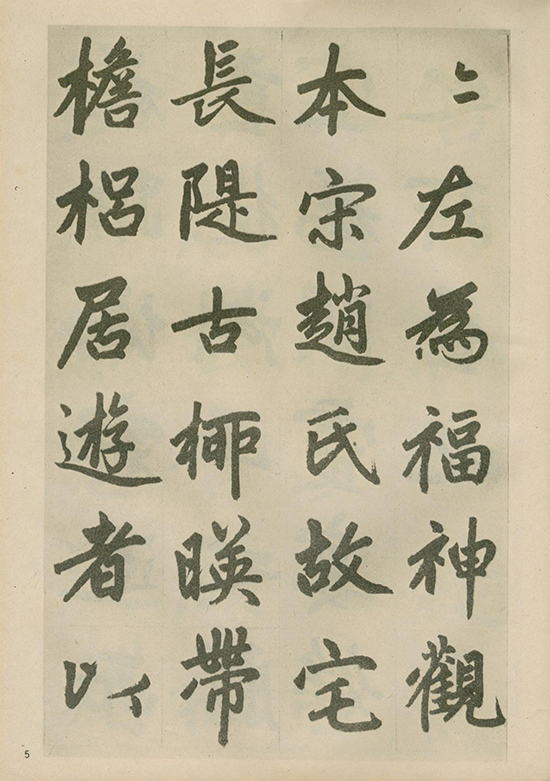 〻左為福神觀
本宋趙氏故宅
長隄古栁暎帶
檐梠居遊者以
5